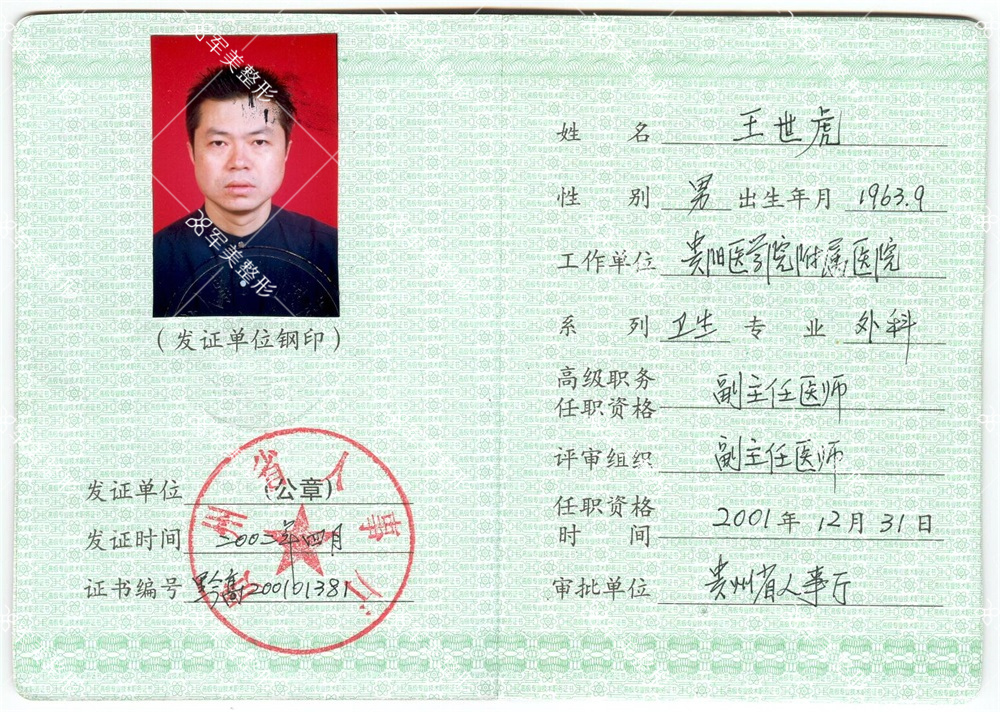 88军美整形
88军美整形
(发证单位钢印)
贵州省人事厅
发证单位 (公章)
发证时间 二00二年四月
证书编号 黔高200101381
姓 名 王世虎
性 别 男 出生年月 1963.9
工作单位 贵阳医学院附属医院
系 列 卫生 专 业 外科
高级职务
任职资格 副主任医师
评审组织 副主任医师
任职资格
时 间 2001年12月31日
审批单位 贵州省人事厅